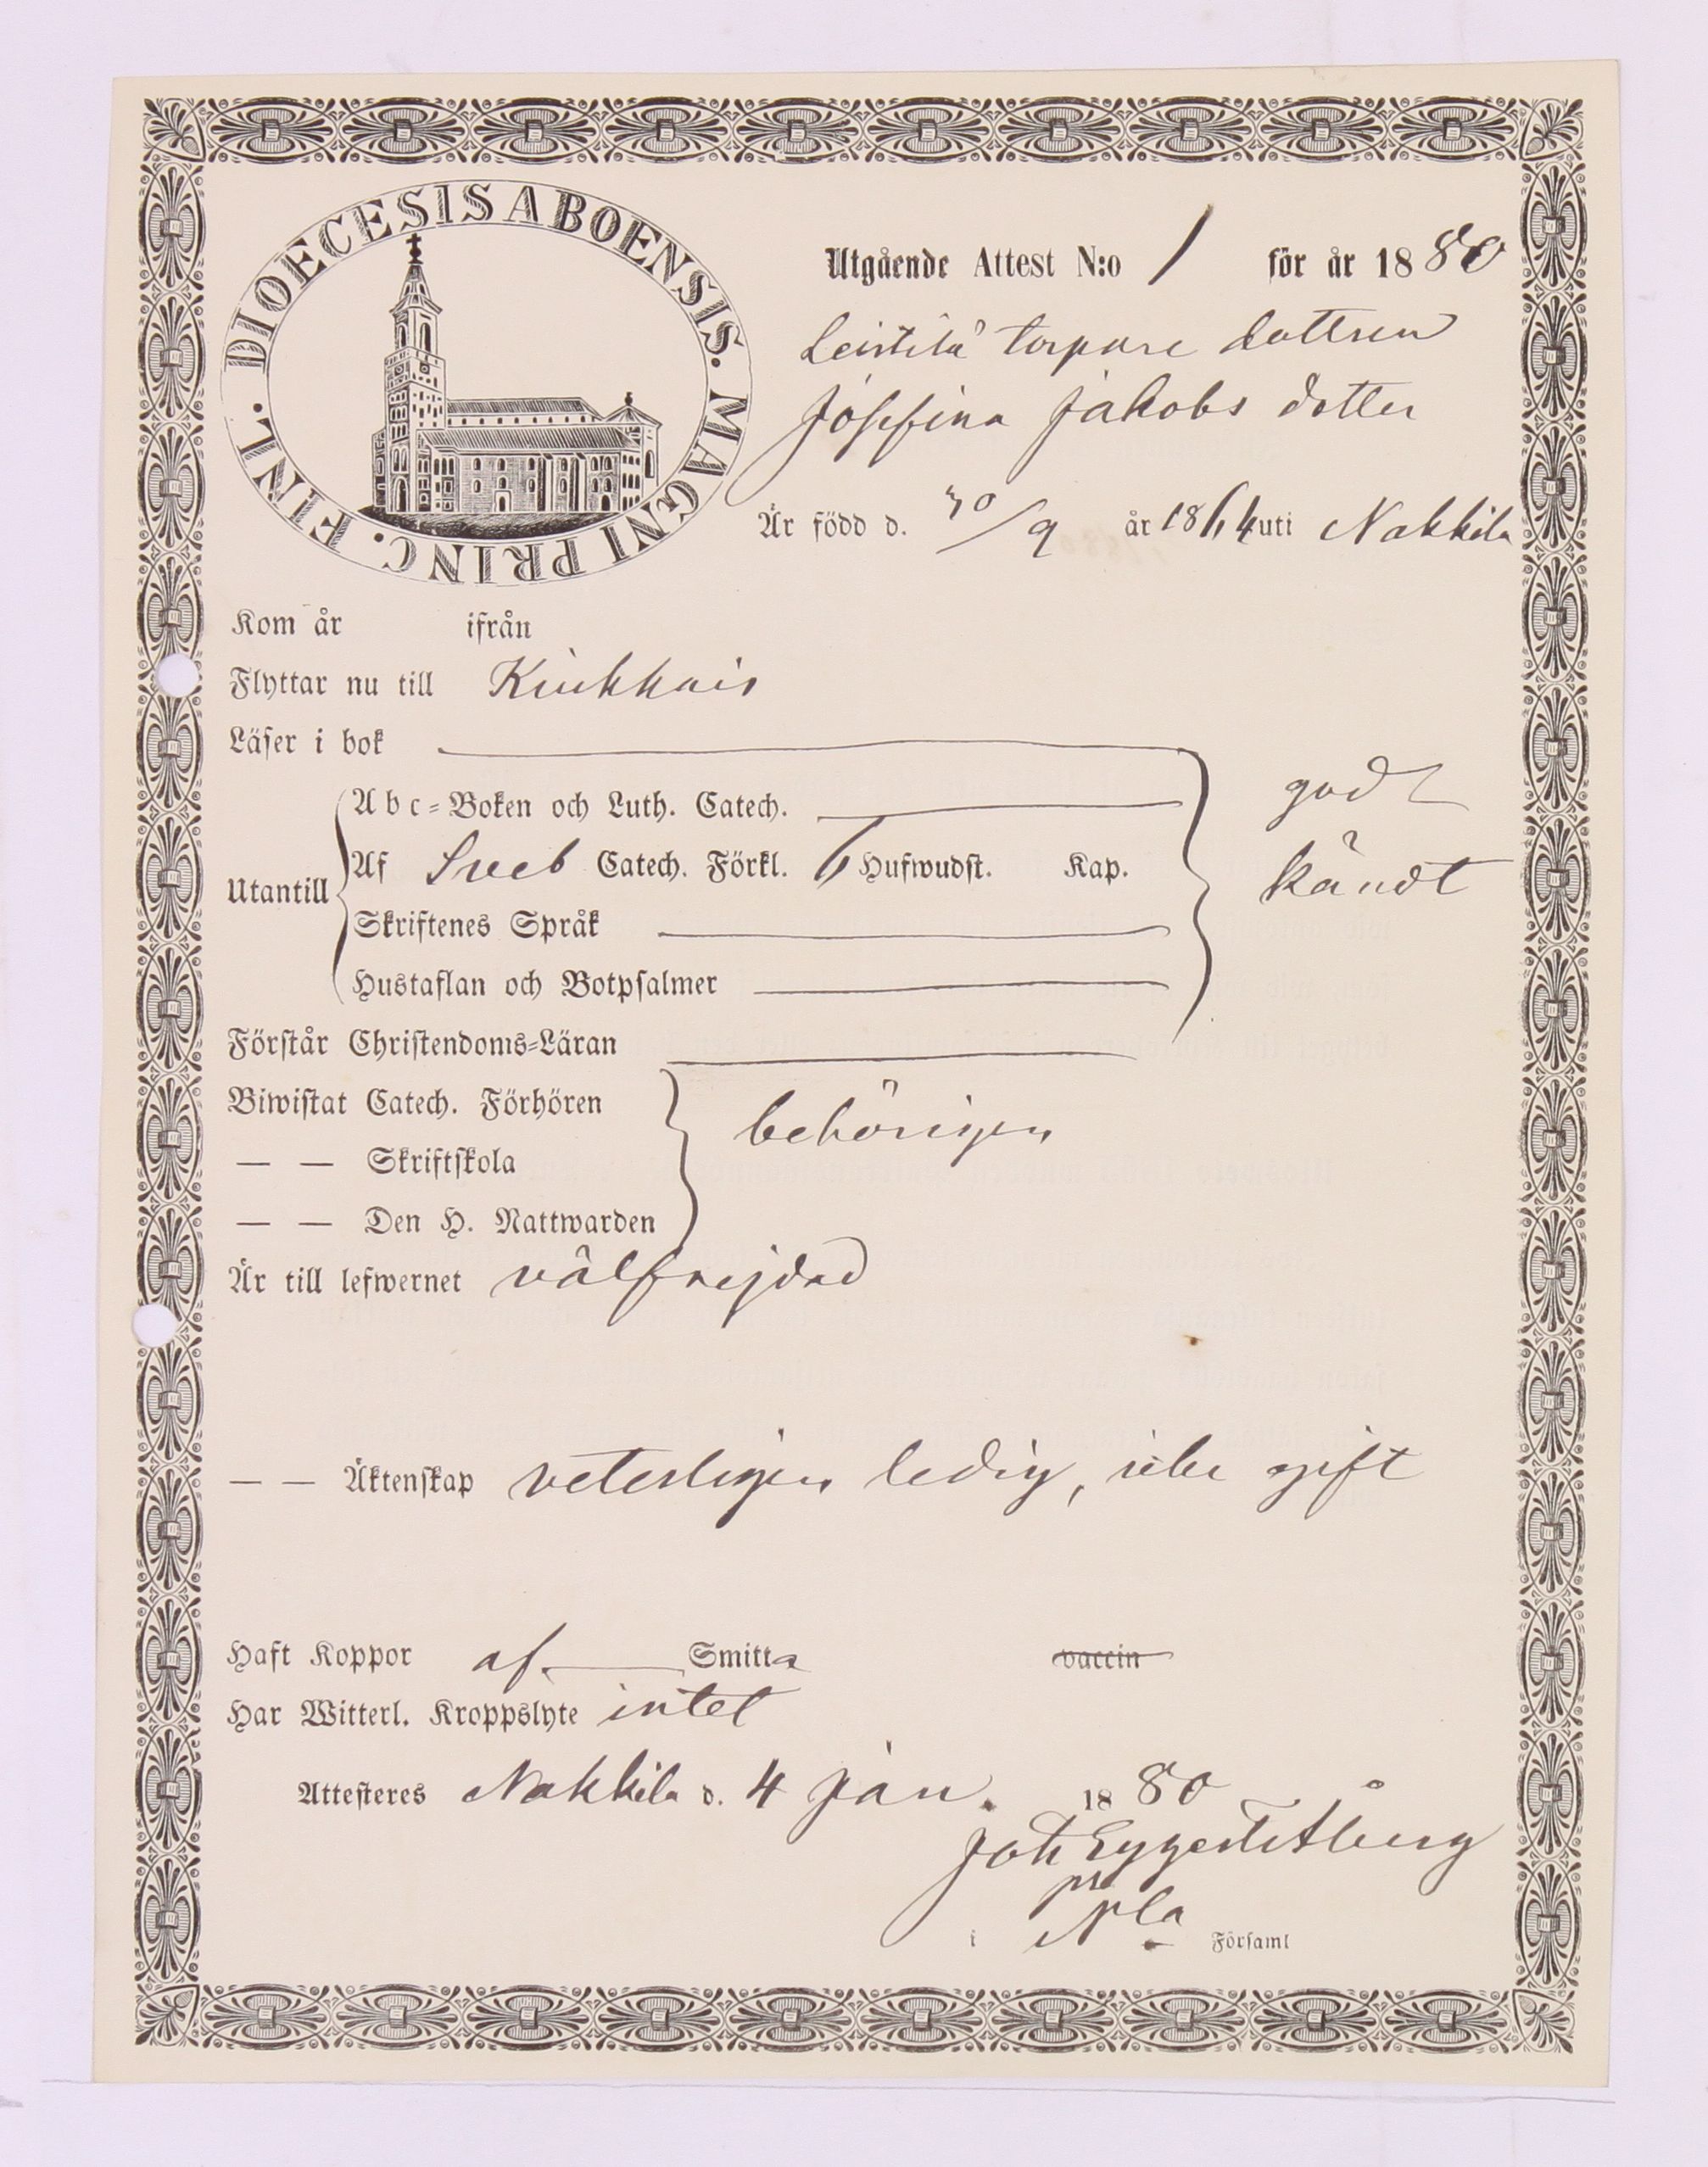 DIOECESIS ABOENSIS. MAGNI PRINC. FINL.
Utgående Attest N:o 1 för år 1880
Leistilä torpare dottren
Josefina Jakobs dotter
Är född d. 30/9 år 1864 uti Nakkila
Kom år ifrån
Flyttar nu till Kiukkais
Läser i bok
godt
Abc-Boken och Luth. Catech.
Utantill
Af Sveb Catech. Förkl. 6 Hufwudst. Kap.
kändt
Skriftenes Språk
Hustaflan och Botpsalmer
Förstår Christendoms-Läran
Biwistat Catech. Förhören
behörigen
— — Skriftskola
— — Den H. Nattwarden
Är till lefwernet välfrejdad
— — Äktenskap veterligen ledig, icke gift
Haft Koppor af Smitta vaccin
Har Witterl. Kroppslyte intet
Attesteres Nakkila d. 4 Jan. 1880
Joh
i Nla Församl